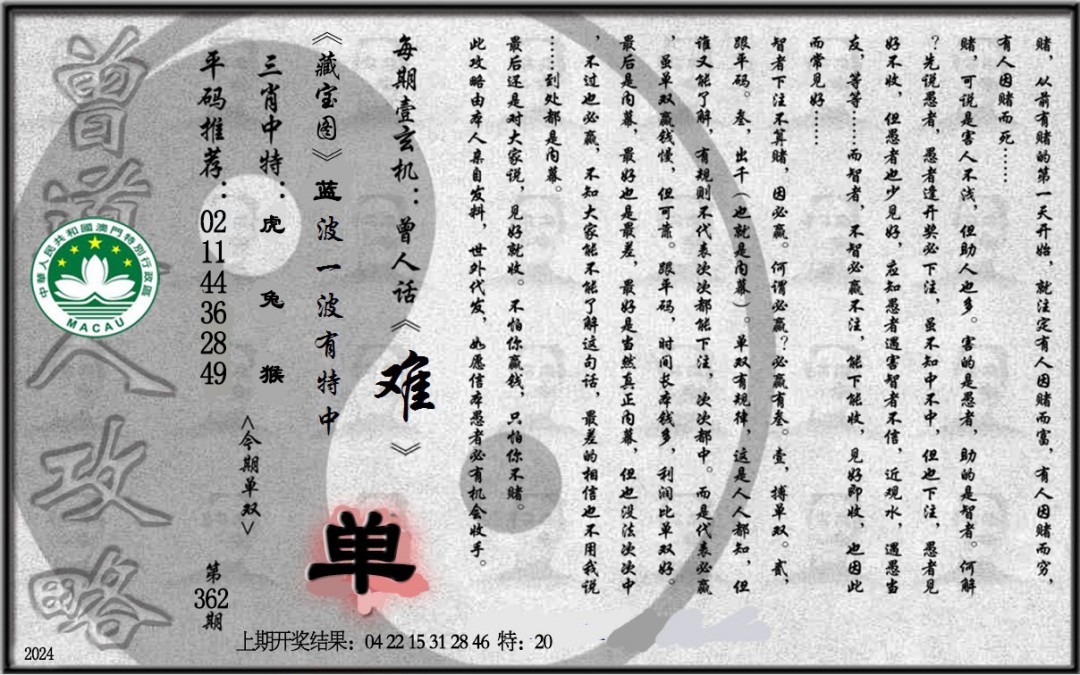 赌，从前有赌的第一天开始，就注定有人因赌而富，有人因赌而穷，
有人因赌而死……
赌，可说是害人不浅，但助人也多。害的是愚者，助的是智者。何解
？先说愚者，愚者逢开奖必下注，虽不知中不中，但也下注，愚者见
好不收，但愚者也少见好，应知愚者遇害智者不信，近观水，遇愚当
友，等等……而智者，不智必赢不注，能下能收，见好即收，也因此
而常见好……
智者下注不算赌，因必赢。何谓必赢？必赢有叁。壹，搏单双。贰，
跟平码。叁，出千（也就是内幕）。单双有规律，这是人人都知，但
谁又能了解，有规则不代表次次都能下注，次次都中。而是代表必赢
，虽单双赢钱慢，但可靠。跟平码，时间长本钱多，利润比单双好。
最后是内幕，最好也是最差，最好是当然真正内幕，但也没法次次中
，不过也必赢，不知大家能不能了解这句话，最差的相信也不用我说
……到处都是内幕。
最后还是对大家说，见好就收。不怕你赢钱，只怕你不赌。
此攻略由本人亲自发料，世外代发，如愿信本愚者必有机会收手。
每期壹玄机：曾人话《难》
《藏宝图》蓝波一波有特中
三肖中特：虎 兔 猴
平码推荐：02 11 44 36 28 49
<今期单双>
单
第362期
曾道人攻略
中華人民共和國澳門特別行政區
MACAU
上期开奖结果：04 22 15 31 28 46 特：20
2024